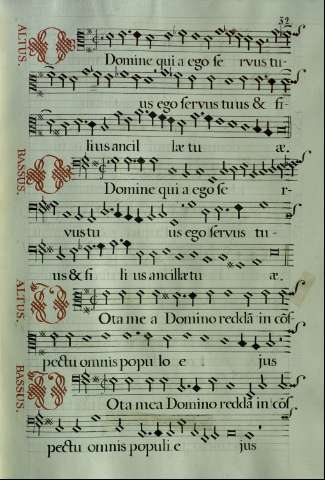 32
ALTUS. Domine qui a ego se rvus tu-
us ego servus tuus & fi-
lius ancil læ tu æ.
BASSUS. Domine qui a ego se r-
vus tu us ego servus tu-
us & fi li us ancillæ tu æ.
ALTUS. Vota me a Domino reddã in cõs-
pectu omnis popu lo e jus
BASSUS. Vota mea Domino reddã in cõs-
pectu omnis populi e jus